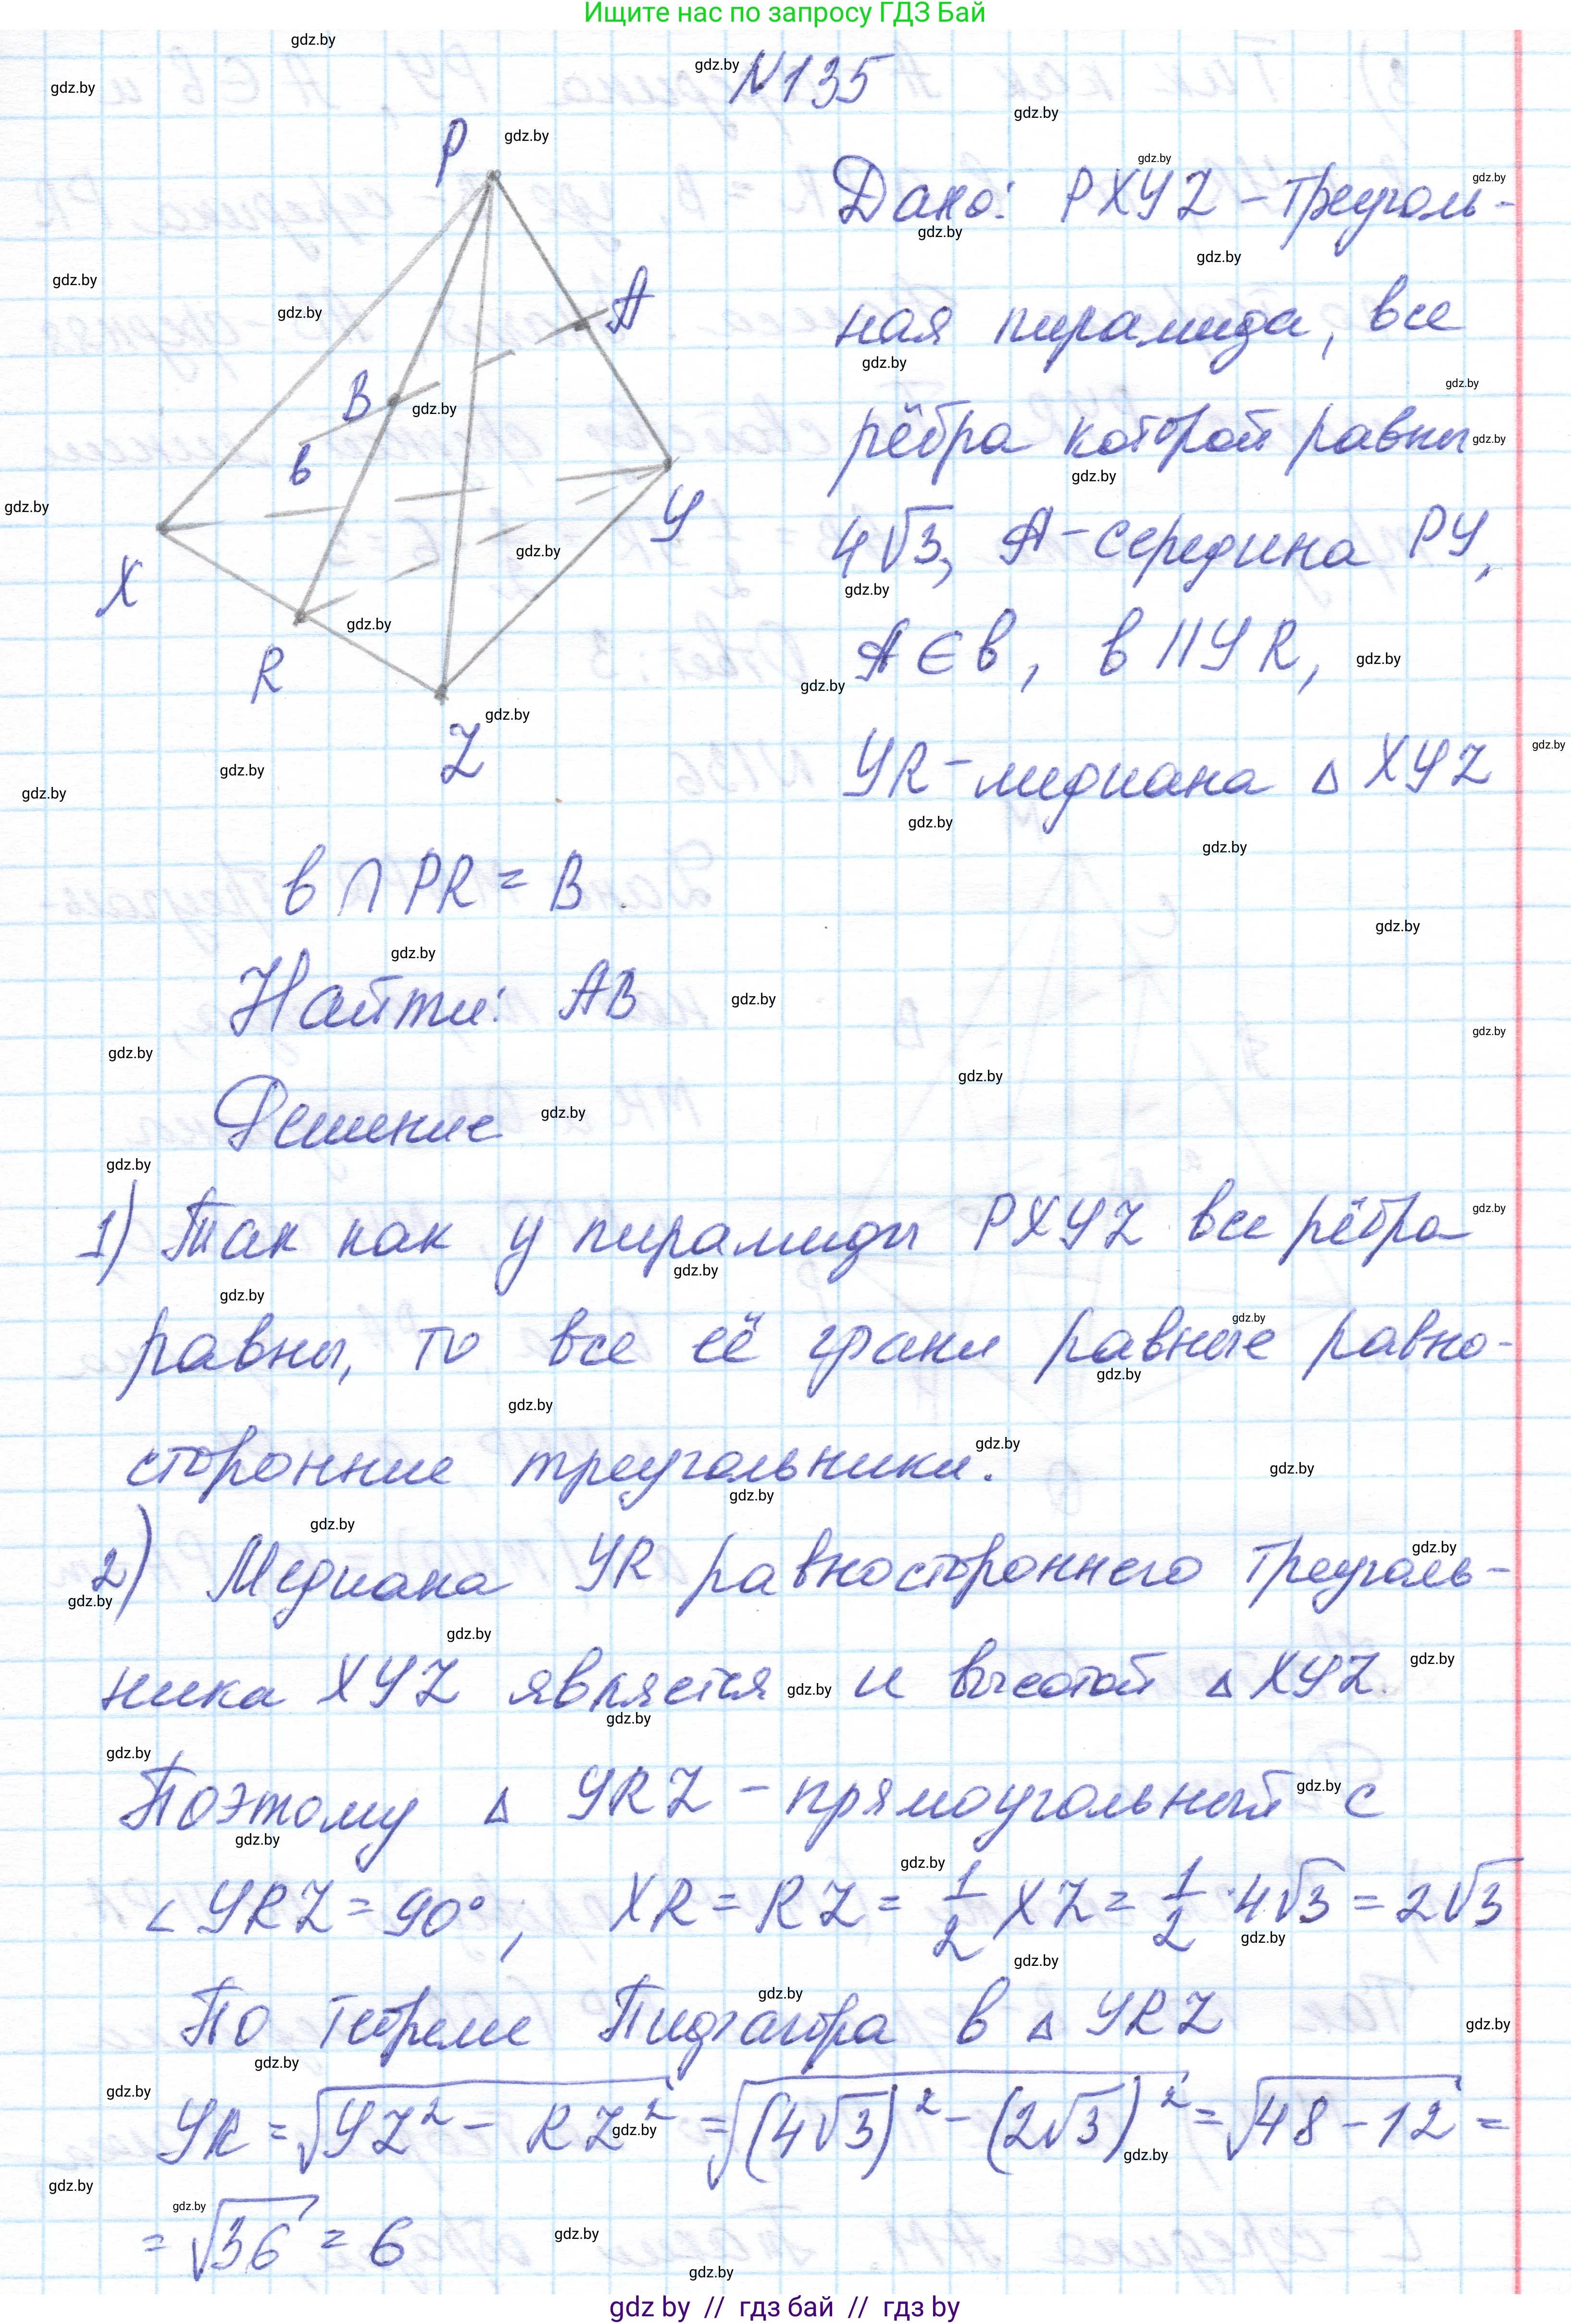 Ищите нас по запросу ГДЗ Бай
N135
P
A
B
в
X
Y
R
Z
Дано: PXYZ - треуголь-
ная пирамида, все
рёбра которой равны
4√3, A - середина PY,
A ∈ в, в || YR,
YR - медиана △ XYZ
в ∩ PR = B.
Найти: AB
Решение
1) Так как у пирамиды PXYZ все рёбра
равны, то все её грани равные равно-
сторонние треугольники.
2) Медиана YR равностороннего треуголь-
ника XYZ является и высотой △ XYZ.
Поэтому △ YRZ - прямоугольный с
∠ YRZ = 90°, XR = RZ = 1/2 XZ = 1/2 · 4√3 = 2√3
По теореме Пифагора в △ YRZ
YR = √(YZ² - RZ²) = √((4√3)² - (2√3)²) = √(48 - 12) =
= √36 = 6
gdz by // гдз бай // гдз by